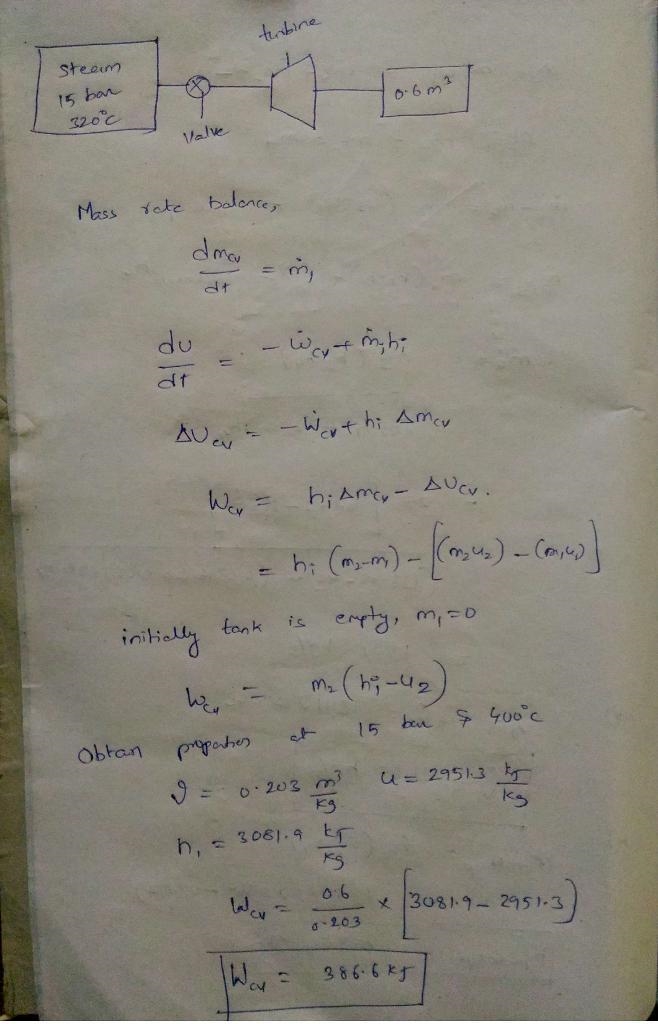 turbine
steam
15 bar
320°C
Valve
0.6 m³
Mass rate balance,
dm_cv/dt = ṁ_i
du/dt = - Ẇ_cv + ṁ_i h_i
ΔU_cv = - Ẇ_cv + h_i Δm_cv
W_cv = h_i Δm_cv - ΔU_cv.
= h_i (m₂-m₁) - [(m₂u₂) - (m₁u₁)]
initially tank is empty, m₁=0
W_cv = m₂ (h_i - u₂)
Obtain properties at 15 bar & 400°C
ϑ = 0.203 m³/kg u = 2951.3 kJ/kg
h₁ = 3081.9 kJ/kg
W_cv = 0.6/0.203 × [3081.9 - 2951.3)
W_cv = 386.6 kJ